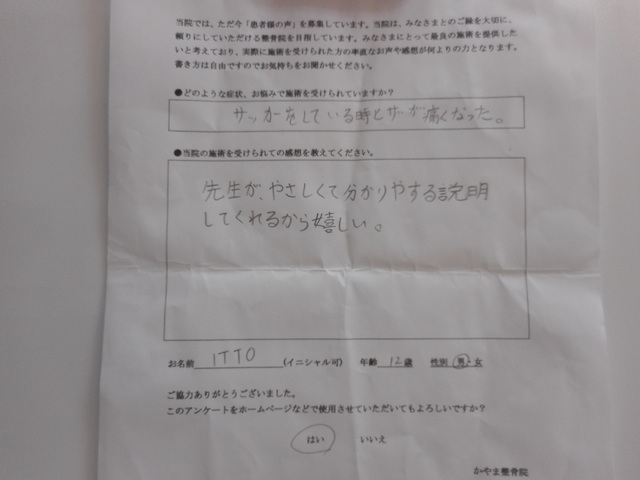 当院では、ただ今「患者様の声」を募集しています。当院は、みなさまとのご縁を大切に、
頼りにしていただける整骨院を目指しています。みなさまにとって最良の施術を提供した
いと考えており、実際に施術を受けられた方の率直なお声や感想が何よりの力となります。
書き方は自由ですのでお気持ちをお聞かせください。
●どのような症状、お悩みで施術を受けられていますか？
サッカーをしている時と が痛くなった。
●当院の施術を受けられての感想を教えてください。
先生が、やさしくて分かりやする説明
してくれるから嬉しい。
お名前 ITTO (イニシャル可) 年齢 12歳 性別 男・女
ご協力ありがとうございました。
このアンケートをホームページなどで使用させていただいてもよろしいですか？
はい いいえ
かやま整骨院